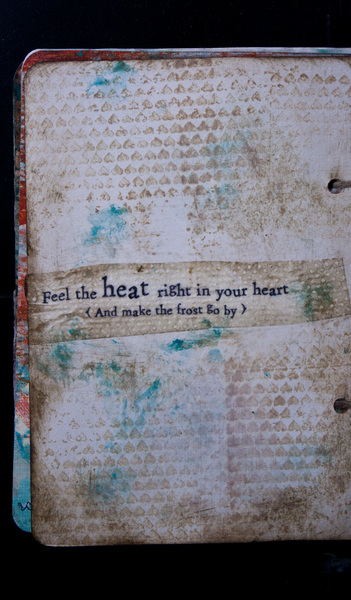 Feel the heat right in your heart
(And make the frost go by)